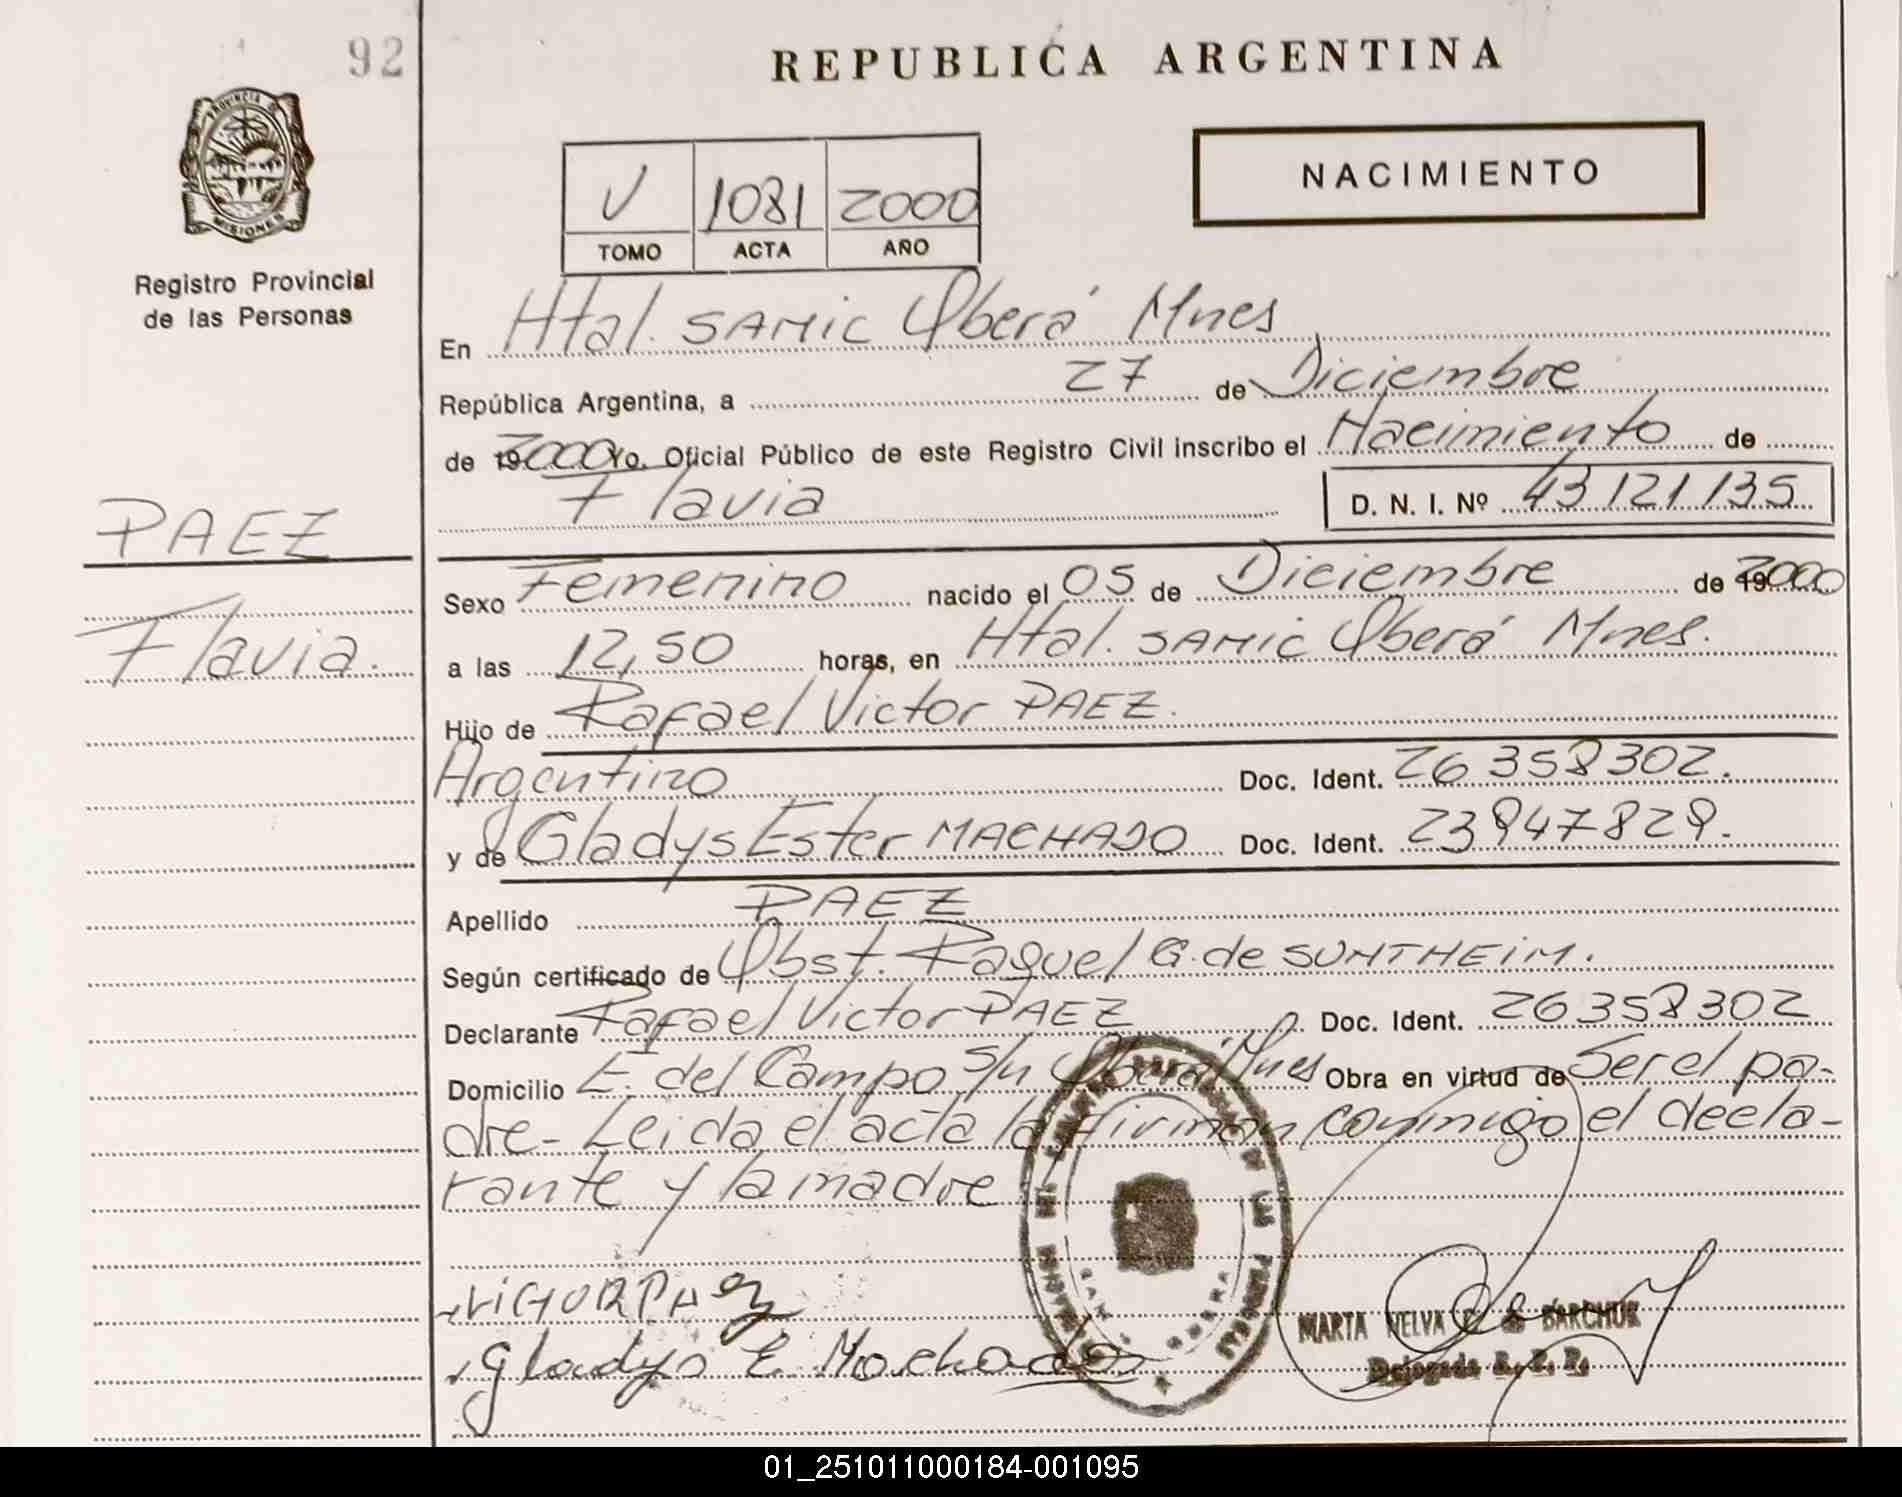 92
REPUBLICA ARGENTINA
PROVINCIA DE
MISIONES
Registro Provincial
de las Personas
NACIMIENTO
V 1081 2000
TOMO ACTA AÑO
En Htal. SAMIC Oberá Mnes
República Argentina, a 27 de Diciembre
de 2000 Yo. Oficial Público de este Registro Civil inscribo el Nacimiento de
Flavia D. N. I. Nº 43.121.135
PAEZ
Flavia.
Sexo Femenino nacido el 05 de Diciembre de 2000
a las 12,50 horas, en Htal. SAMIC Oberá Mnes.
Hijo de Rafael Victor PAEZ.
Argentino Doc. Ident. 26358302.
y de Gladys Ester MACHADO Doc. Ident. 23947829.
Apellido PAEZ
Según certificado de Obst. Raquel G. de SUNTHEIM.
Declarante Rafael Victor PAEZ Doc. Ident. 26358302
Domicilio E. del Campo S/n Oberá Mnes Obra en virtud de Ser el pa-
dre- Leida el acta la firman conmigo el decla-
rante y la madre
VICTOR PAEZ
Gladys E. Machado
MARTA NELVA DE BARCHUK
Delegada R. P. P.
01_251011000184-001095